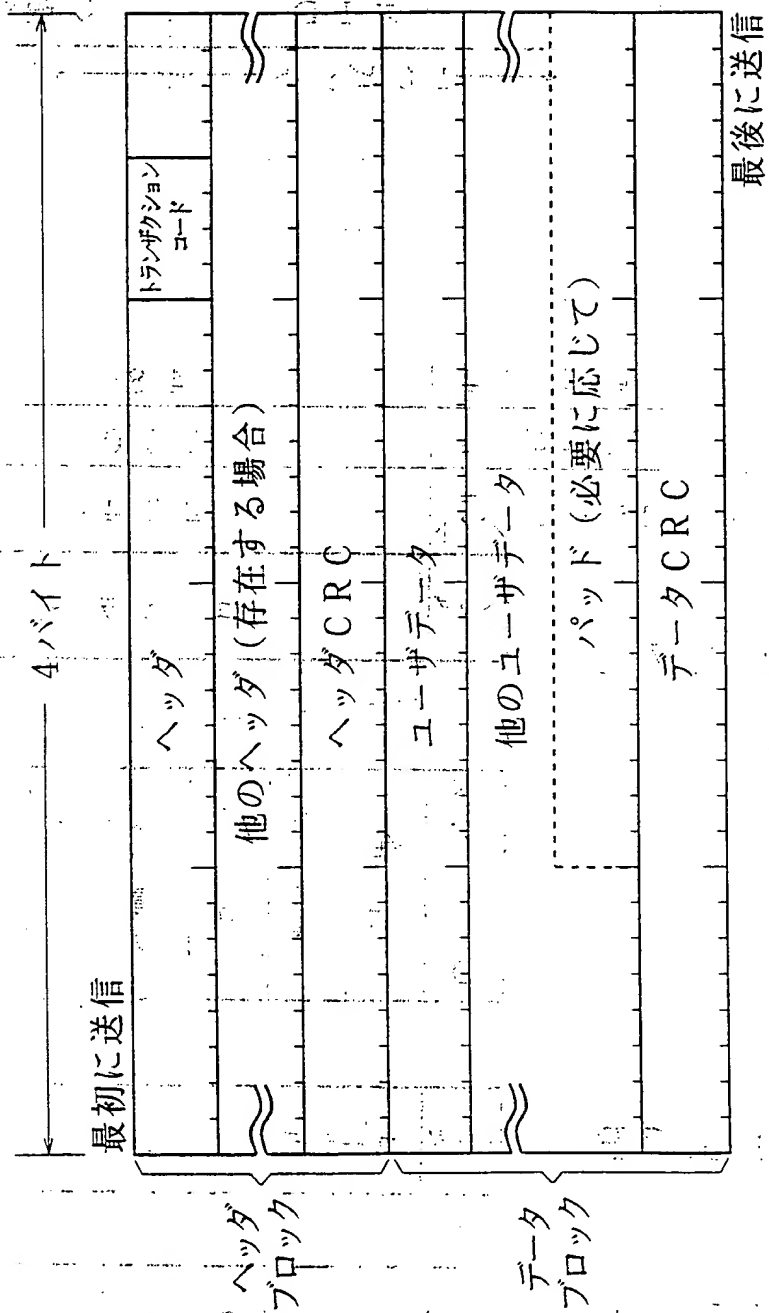 4バイト
最初に送信
ヘッダ
トランザクション
コード
他のヘッダ(存在する場合)
ヘッダCRC
ユーザデータ
他のユーザデータ
パッド(必要に応じて)
データCRC
ヘッダ
ブロック
データ
ブロック
最後に送信